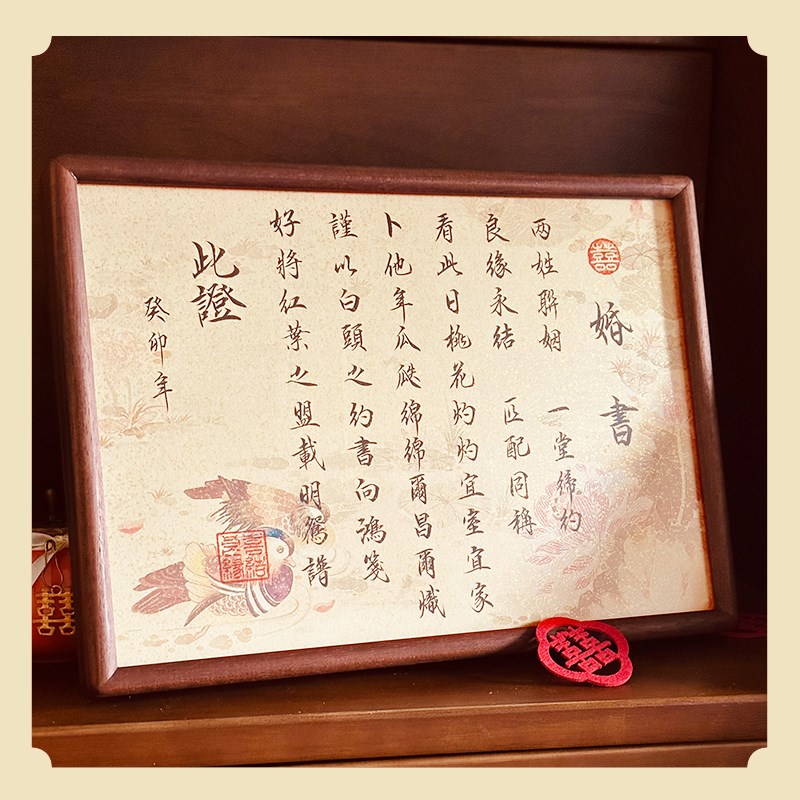 囍
婚書
两姓聯姻 一堂締約
良緣永结 匹配同稱
看此日桃花灼灼宜室宜家
卜他年瓜瓞綿綿爾昌爾熾
謹以白頭之約書向鴻箋
好將紅葉之盟載明鴛譜
此證
癸卯年
喜结良緣
囍
囍